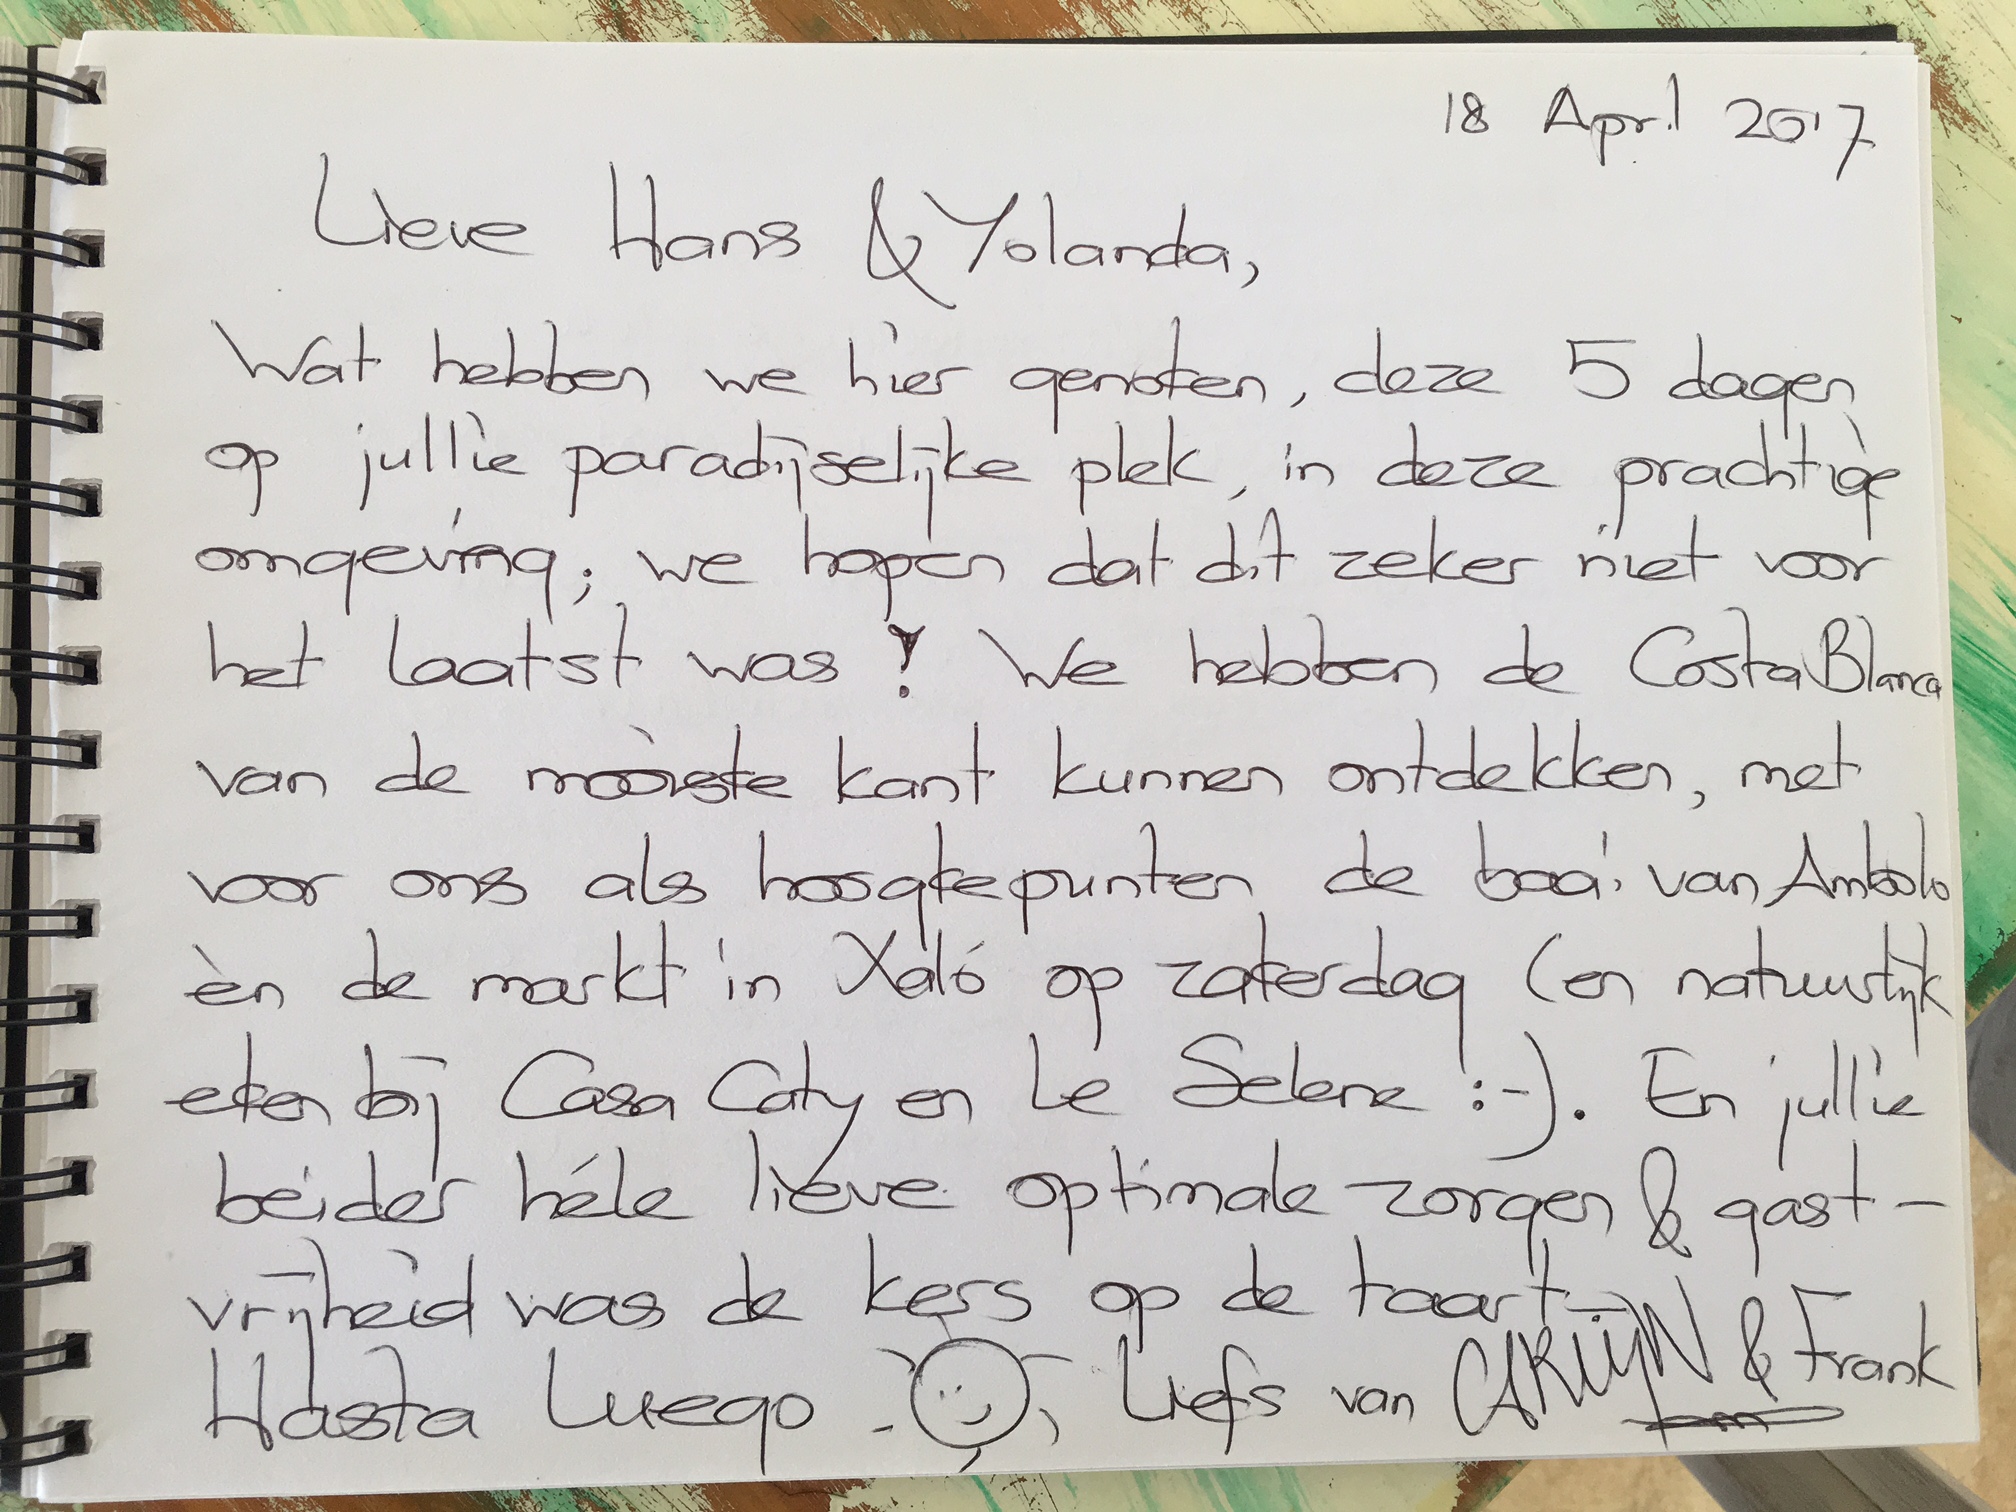 18 April 2017
Lieve Hans & Yolanda,
Wat hebben we hier genoten, deze 5 dagen
op jullie paradijselijke plek, in deze prachtige
omgeving; we hopen dat dit zeker niet voor
het laatst was! We hebben de Costa Blanca
van de mooiste kant kunnen ontdekken, met
voor ons als hoogtepunten de baai van Ambolo
èn de markt in Xaló op zaterdag (en natuurlijk
eten bij Casa Caty en Le Selene :-). En jullie
beider héle lieve optimale zorgen & gast-
vrijheid was de kers op de taart
Hasta Luego Liefs van & Frank